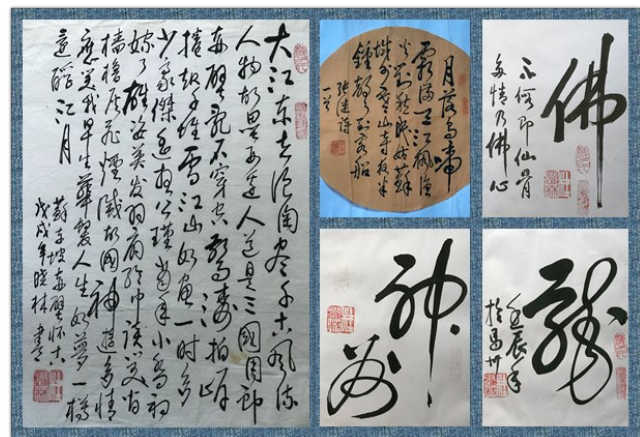 大江东去浪淘尽千古風流
人物故壘西邊人道是三國周郎
赤壁乱石穿空惊涛拍岸
捲起千堆雪江山如画一时多
少豪傑遥想公瑾当年小乔初
嫁了雄姿英发羽扇纶巾谈笑间
樯橹灰飛煙滅故國神遊多情
應笑我早生華髮人生如夢一樽
還酹江月
蘇東坡赤壁怀古
戊戌年晓林書
月落烏啼
霜满天江枫渔
火对愁眠姑蘇
城外寒山寺夜半
鍾声到客船
张继诗
一首
佛
即仙骨
多情乃佛心
神
龍
壬辰年
於